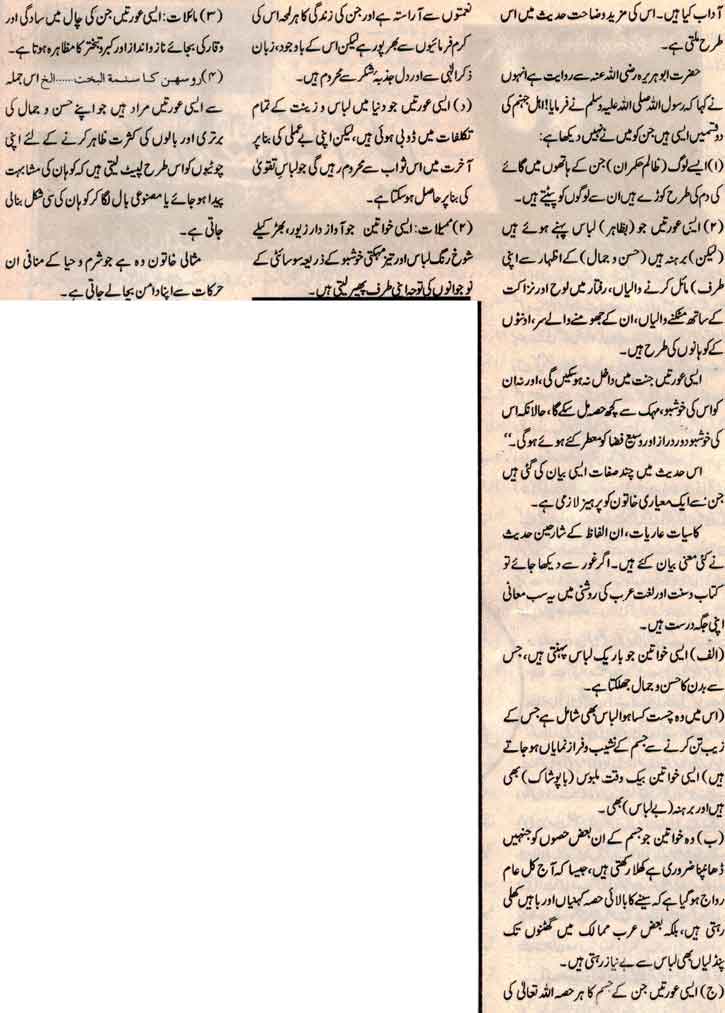 آداب کیا ہیں۔ اس کی مزید وضاحت حدیث میں اس
طرح ملتی ہے۔
حضرت ابوہریرہ رضی اللہ عنہ سے روایت ہے انہوں
نے کہا کہ رسول اللہ صلی اللہ علیہ وسلم نے فرمایا! اہل جہنم کی
دو قسمیں ایسی ہیں جن کو میں نے نہیں دیکھا ہے:
(۱) ایسے لوگ (ظالم حکمران) جن کے ہاتھوں میں گائے
کی دم کی طرح کوڑے ہیں ان سے لوگوں کو پیٹتے ہیں۔
(۲) ایسی عورتیں جو (بظاہر) لباس پہنے ہوئے ہیں
(لیکن) برہنہ ہیں (حسن و جمال) کے اظہار سے اپنی
طرف) مائل کرنے والیاں، رفتار میں لوچ اور نزاکت
کے ساتھ مٹکنے والیاں، ان کے جھومنے والے سر، اونٹوں
کے کوہانوں کی طرح ہیں۔
ایسی عورتیں جنت میں داخل نہ ہو سکیں گی، اور نہ ان
کو اس کی خوشبو، مہک سے کچھ حصہ مل سکے گا، حالانکہ اس
کی خوشبو دور دراز اور وسیع فضا کو معطر کئے ہوئے ہو گی۔‘‘
اس حدیث میں چند صفات ایسی بیان کی گئی ہیں
جن سے ایک معیاری خاتون کو پرہیز لازمی ہے۔
کاسیات عاریات، ان الفاظ کے شارحین حدیث
نے کئی معنی بیان کئے ہیں۔ اگر غور سے دیکھا جائے تو
کتاب و سنت اور لغت عرب کی روشنی میں یہ سب معانی
اپنی جگہ درست ہیں۔
(الف) ایسی خواتین جو باریک لباس پہنتی ہیں، جس
سے بدن کا حسن و جمال جھلکتا ہے۔
(اس میں وہ چست کسا ہوا لباس بھی شامل ہے جس کے
زیب تن کرنے سے جسم کے نشیب و فراز نمایاں ہو جاتے
ہیں) ایسی خواتین بیک وقت ملبوس (باپوشاک) بھی
ہیں اور برہنہ (بے لباس) بھی۔
(ب) وہ خواتین جو جسم کے ان بعض حصوں کو جنہیں
ڈھانپنا ضروری ہے کھلا رکھتی ہیں، جیسا کہ آج کل عام
رواج ہو گیا ہے کہ سینے کا بالائی حصہ کہنیاں اور باہیں کھلی
رہتی ہیں، بلکہ بعض عرب ممالک میں گھٹنوں تک
پنڈلیاں بھی لباس سے بے نیاز رہتی ہیں۔
(ج) ایسی عورتیں جن کے جسم کا ہر حصہ اللہ تعالیٰ کی
نعمتوں سے آراستہ ہے اور جن کی زندگی کا ہر لمحہ اس کی
کرم فرمائیوں سے بھرپور ہے لیکن اس کے باوجود، زبان
ذکر الٰہی سے اور دل جذبۂ شکر سے محروم ہیں۔
(د) ایسی عورتیں جو دنیا میں لباس و زینت کے تمام
تکلفات میں ڈوبی ہوئی ہیں، لیکن اپنی بے عملی کی بنا پر
آخرت میں اس ثواب سے محروم رہیں گی جو لباسِ تقویٰ
کی بنا پر حاصل ہو سکتا ہے۔
(۲) ممیلات: ایسی خواتین جو آواز دار زیور، بھڑکیلے
شوخ رنگ لباس اور تیز مہکتی خوشبو کے ذریعہ سوسائٹی کے
نوجوانوں کی توجہ اپنی طرف پھیر لیتی ہیں۔
(۳) مائلات: ایسی عورتیں جن کی چال میں سادگی اور
وقار کی بجائے ناز و انداز اور کبر و تبختر کا مظاہرہ ہوتا ہے۔
(۴) روسھن کا سنمة البخت......الخ اس جملہ
سے ایسی عورتیں مراد ہیں جو اپنے حسن و جمال کی
برتری اور بالوں کی کثرت ظاہر کرنے کے لئے اپنی
چوٹیوں کو اس طرح لپیٹ لیتی ہیں کہ کوہان کی مشابہت
پیدا ہو جائے یا مصنوعی بال لگا کر کوہان کی سی شکل بنالی
جاتی ہے۔
مثالی خاتون وہ ہے جو شرم و حیا کے منافی ان
حرکات سے اپنا دامن بچالے جاتی ہے۔